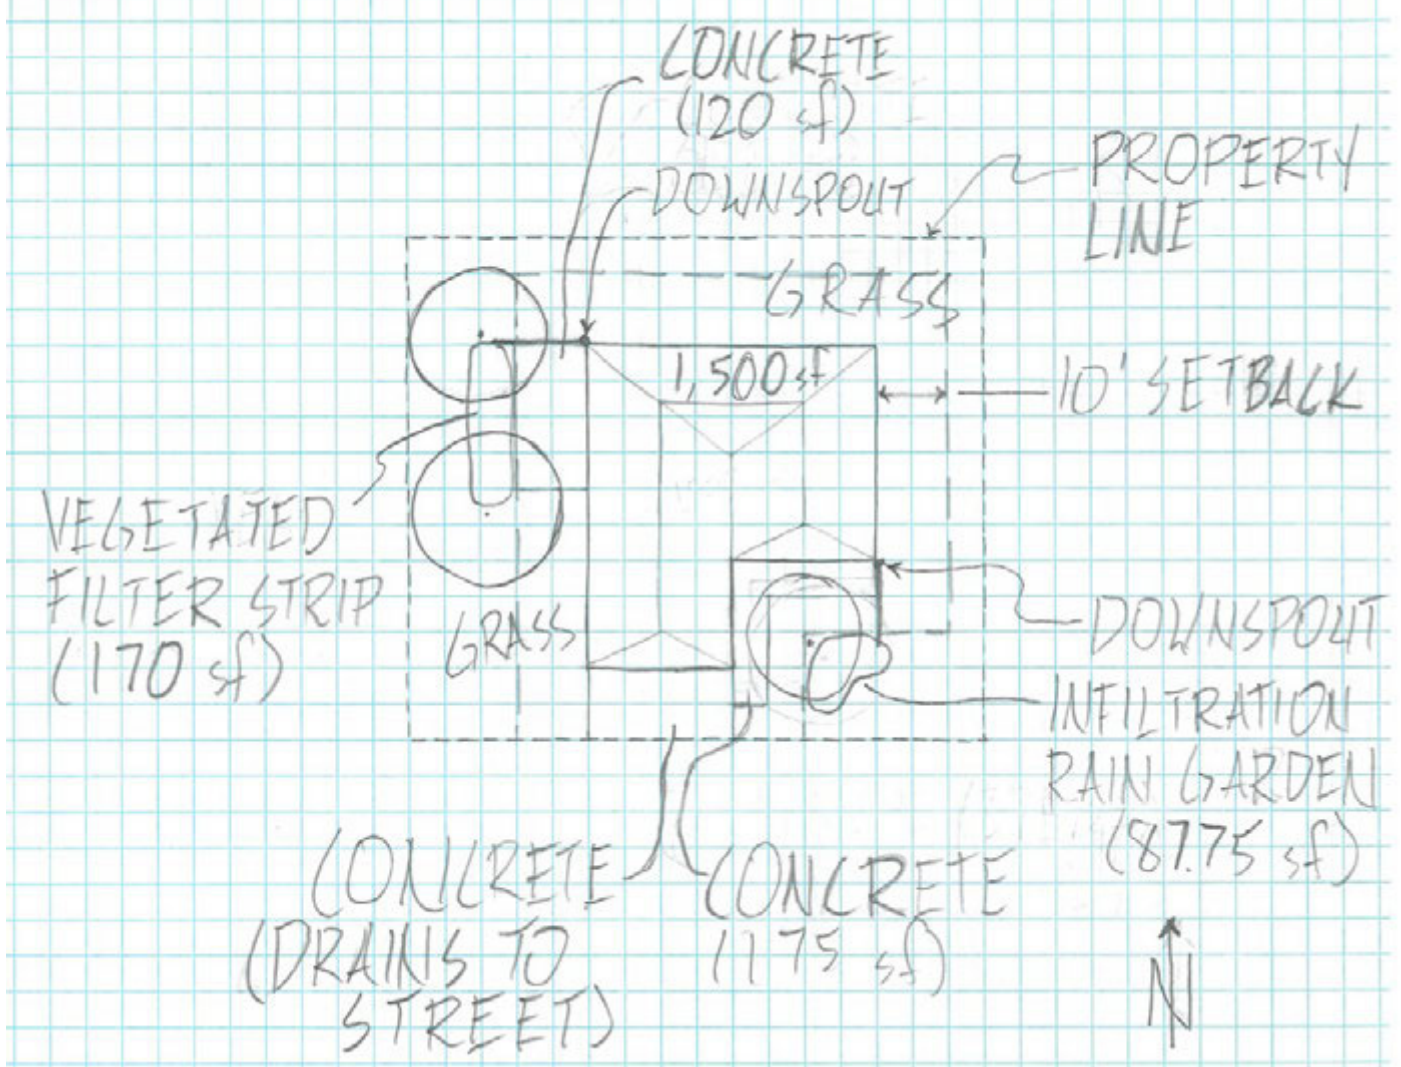 CONCRETE
(120 sf)
DOWNSPOUT
PROPERTY
LINE
GRASS
1,500 sf
10' SETBACK
VEGETATED
FILTER STRIP
(170 sf)
GRASS
DOWNSPOUT
INFILTRATION
RAIN GARDEN
(87.75 sf)
CONCRETE
(DRAINS TO
STREET)
CONCRETE
(175 sf)
N